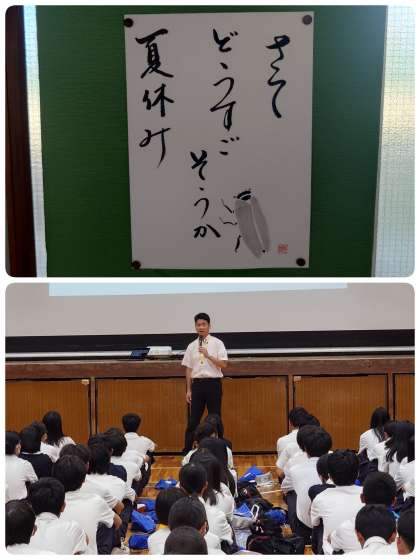 さて
どうすごそうか
夏休み